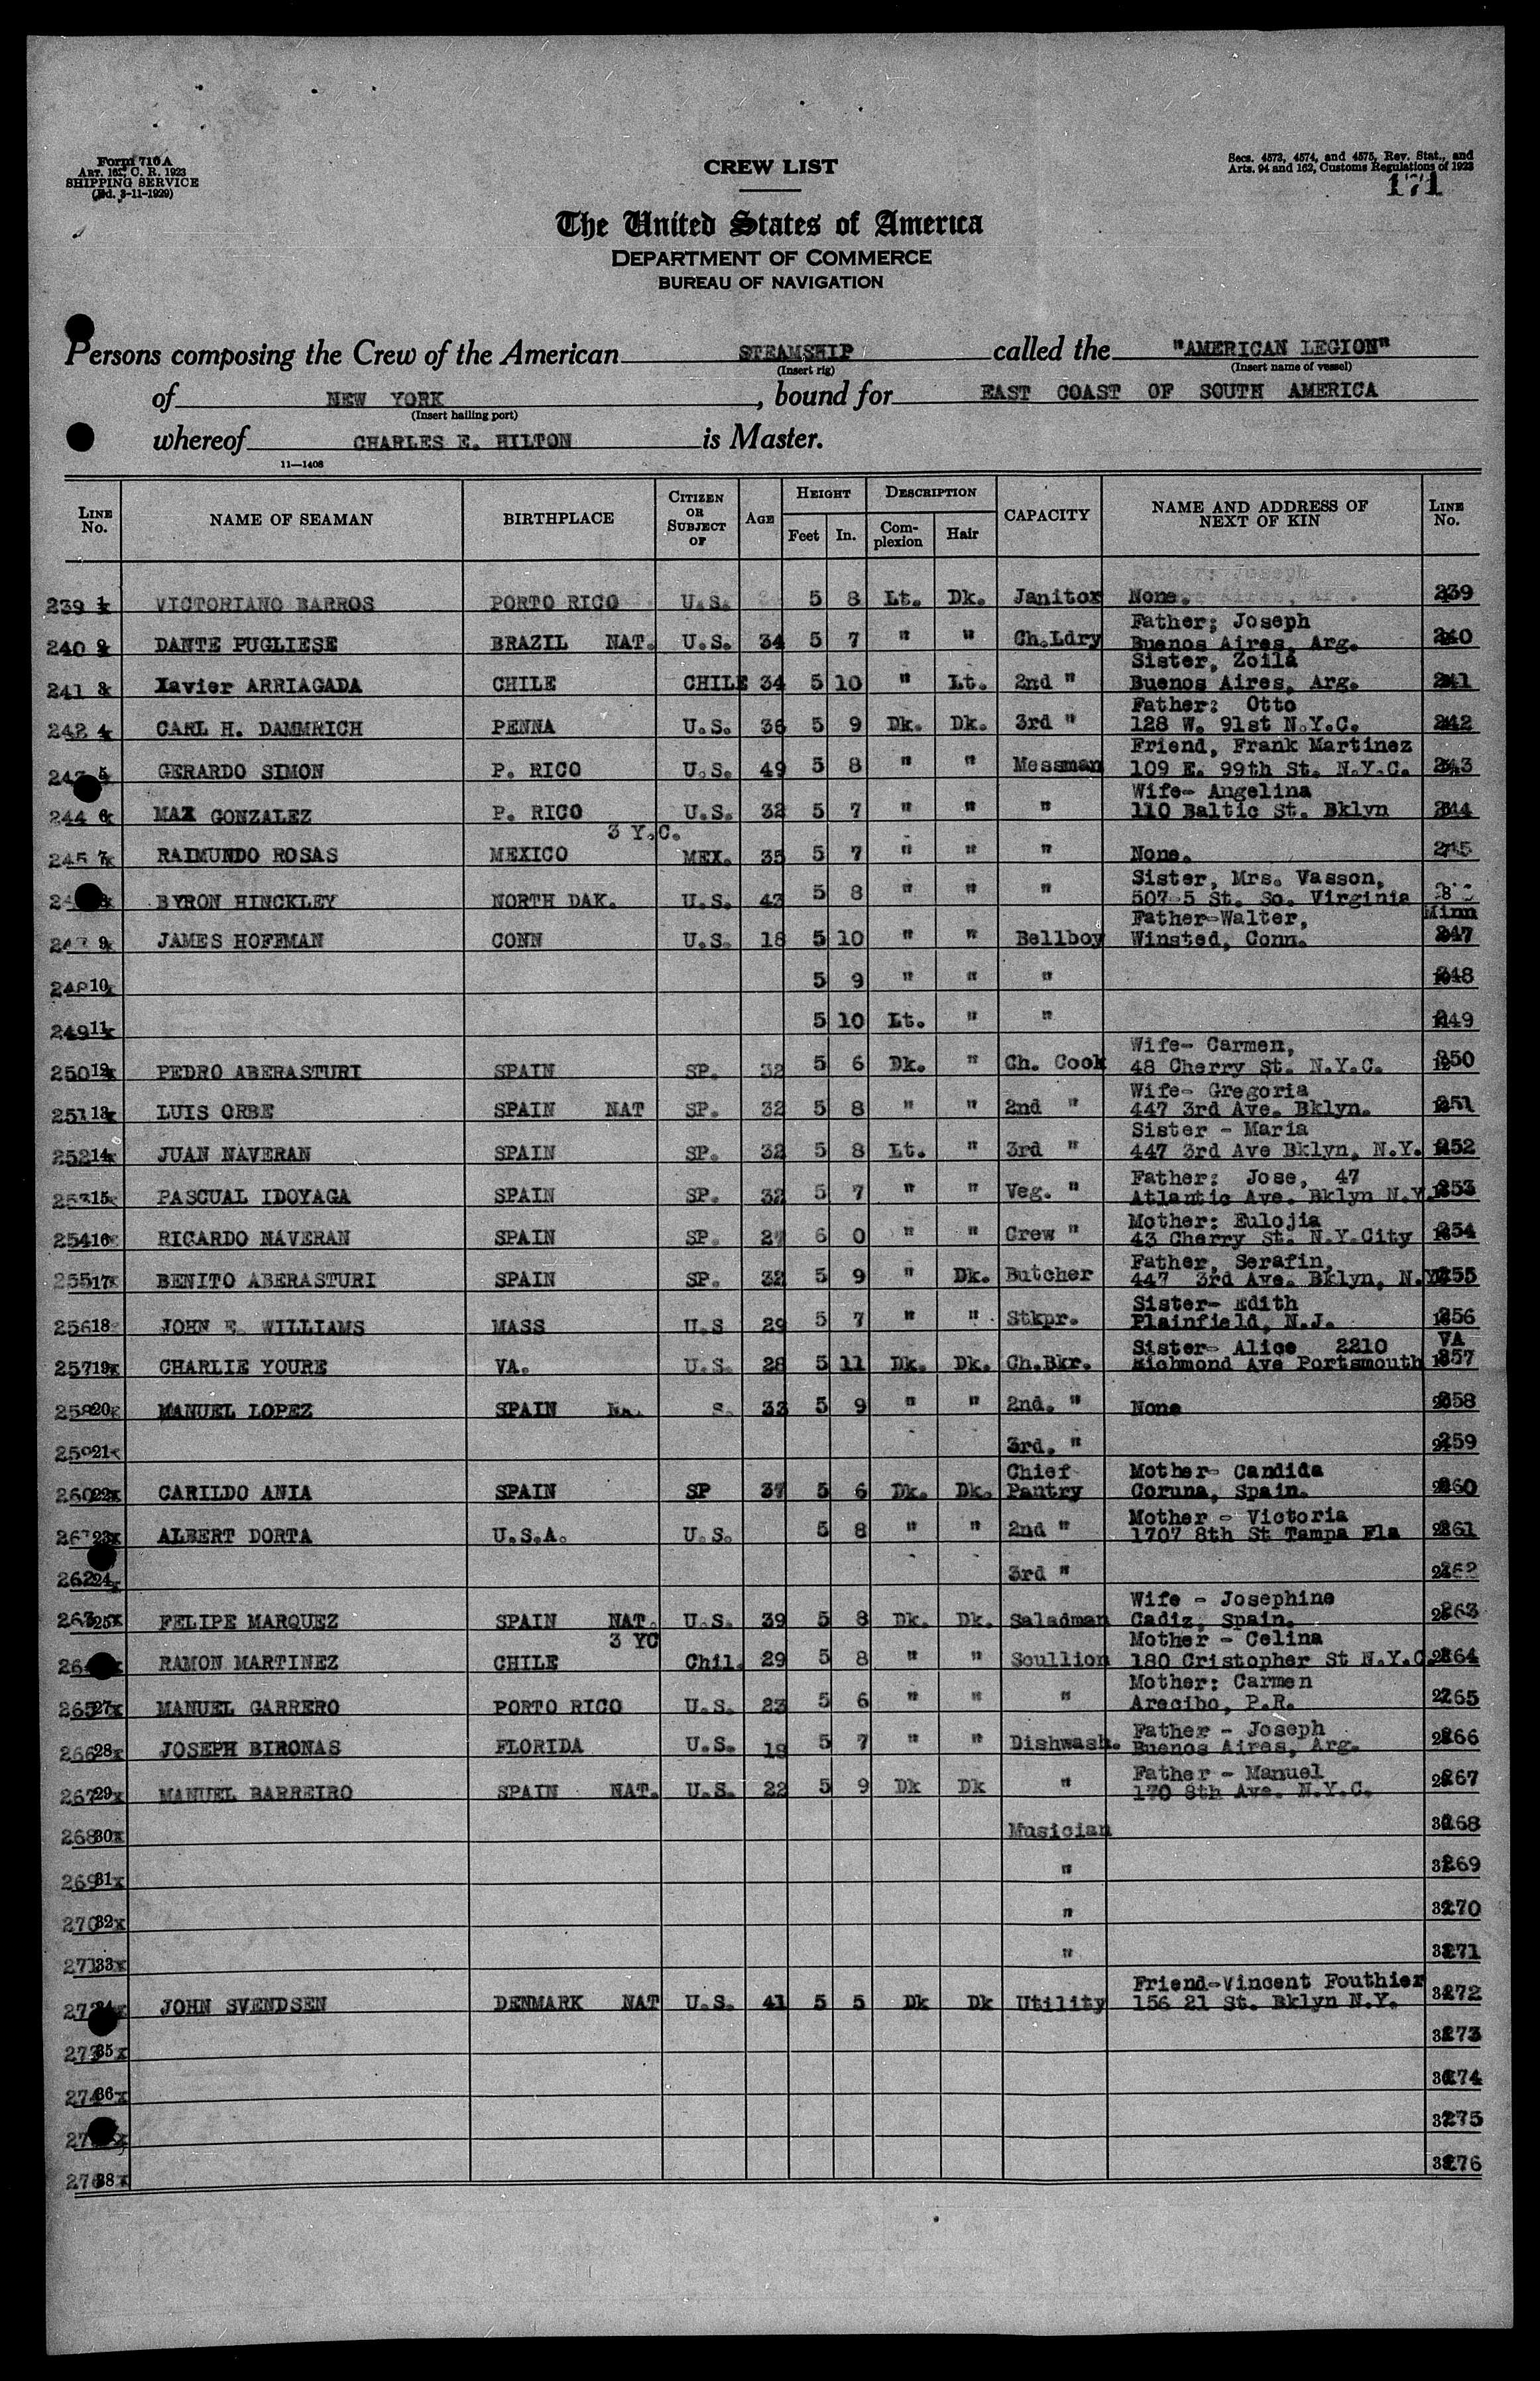 Form 710 A
ART. 162, C. R. 1923
SHIPPING SERVICE
(Ed. 3-11-1929)
CREW LIST
Secs. 4573, 4574, and 4575, Rev. Stat., and
Arts. 94 and 162, Customs Regulations of 1923
171
The United States of America
DEPARTMENT OF COMMERCE
BUREAU OF NAVIGATION
Persons composing the Crew of the American STEAMSHIP called the "AMERICAN LEGION"
(Insert rig) (Insert name of vessel)
of NEW YORK, bound for EAST COAST OF SOUTH AMERICA
(Insert hailing port)
whereof CHARLES E. HILTON is Master.
11—1408
LINE No. NAME OF SEAMAN BIRTHPLACE CITIZEN OR SUBJECT OF AGE HEIGHT Feet In. DESCRIPTION Complexion Hair CAPACITY NAME AND ADDRESS OF NEXT OF KIN LINE No.
239 1 VICTORIANO BARROS PORTO RICO U.S. 5 8 Lt. Dk. Janitor None. 239
Father; Joseph
240 2 DANTE PUGLIESE BRAZIL NAT. U.S. 34 5 7 " " Ch.Ldry Buenos Aires, Arg. 240
Sister, Zoila
241 3 Xavier ARRIAGADA CHILE CHILE 34 5 10 " Lt. 2nd " Buenos Aires, Arg. 241
Father: Otto
242 4 CARL H. DAMMRICH PENNA U.S. 36 5 9 Dk. Dk. 3rd " 128 W. 91st N.Y.C. 242
Friend, Frank Martinez
243 5 GERARDO SIMON P. RICO U.S. 49 5 8 " " Messman 109 E. 99th St. N.Y.C. 243
Wife- Angelina
244 6 MAX GONZALEZ P. RICO U.S. 32 5 7 " " " 110 Baltic St. Bklyn 244
3 Y.C.
245 7 RAIMUNDO ROSAS MEXICO MEX. 35 5 7 " " " None. 245
Sister, Mrs. Vasson,
BYRON HINCKLEY NORTH DAK. U.S. 43 5 8 " " " 507-5 St. So. Virginia 8
Father-Walter, Minn
247 9 JAMES HOFFMAN CONN U.S. 18 5 10 " " Bellboy Winsted, Conn. 247
248 10 5 9 " " " 248
249 11 5 10 Lt. " " 249
Wife- Carmen,
250 12 PEDRO ABERASTURI SPAIN SP. 32 5 6 Dk. " Ch. Cook 48 Cherry St. N.Y.C. 250
Wife- Gregoria
251 13 LUIS ORBE SPAIN NAT SP. 32 5 8 " " 2nd " 447 3rd Ave. Bklyn. 251
Sister - Maria
252 14 JUAN NAVERAN SPAIN SP. 32 5 8 Lt. " 3rd " 447 3rd Ave Bklyn, N.Y. 252
Father: Jose, 47
253 15 PASCUAL IDOYAGA SPAIN SP. 32 5 7 " " Veg. " Atlantic Ave. Bklyn N.Y. 253
Mother: Eulojia
254 16 RICARDO NAVERAN SPAIN SP. 27 6 0 " " Crew " 43 Cherry St. N.Y.City 254
Father, Serafin,
255 17 BENITO ABERASTURI SPAIN SP. 32 5 9 " Dk. Butcher 447 3rd Ave. Bklyn, N.Y. 255
Sister- Edith
256 18 JOHN E. WILLIAMS MASS U.S 29 5 7 " " Stkpr. Plainfield, N.J. 256
Sister- Alice 2210 VA
257 19 CHARLIE YOURE VA. U.S. 28 5 11 Dk. Dk. Ch.Bkr. Richmond Ave Portsmouth 257
258 20 MANUEL LOPEZ SPAIN 33 5 9 " " 2nd. " None 258
259 21 3rd. " 259
Chief Mother- Candida
260 22 CARILDO ANIA SPAIN SP 37 5 6 Dk. Dk. Pantry Coruna, Spain. 260
Mother - Victoria
261 23 ALBERT DORTA U.S.A. U.S. 5 8 " " 2nd " 1707 8th St Tampa Fla 261
262 24 3rd " 262
Wife - Josephine
263 25 FELIPE MARQUEZ SPAIN NAT. U.S. 39 5 8 Dk. Dk. Saladman Cadiz, Spain. 263
3 YC Mother - Celina
RAMON MARTINEZ CHILE Chil. 29 5 8 " " Scullion 180 Cristopher St N.Y.C. 264
Mother: Carmen
265 27 MANUEL GARRERO PORTO RICO U.S. 23 5 6 " " " Arecibo, P.R. 265
Father - Joseph
266 28 JOSEPH BIRONAS FLORIDA U.S. 19 5 7 " " Dishwash. Buenos Aires, Arg. 266
Father - Manuel
267 29 MANUEL BARREIRO SPAIN NAT. U.S. 22 5 9 Dk Dk " 170 8th Ave. N.Y.C. 267
268 30 Musician 268
269 31 " 269
270 32 " 270
271 33 " 271
Friend-Vincent Fouthier
272 34 JOHN SVENDSEN DENMARK NAT U.S. 41 5 5 Dk Dk Utility 156 21 St. Bklyn N.Y. 272
273 35 273
274 36 274
275
276 38 276